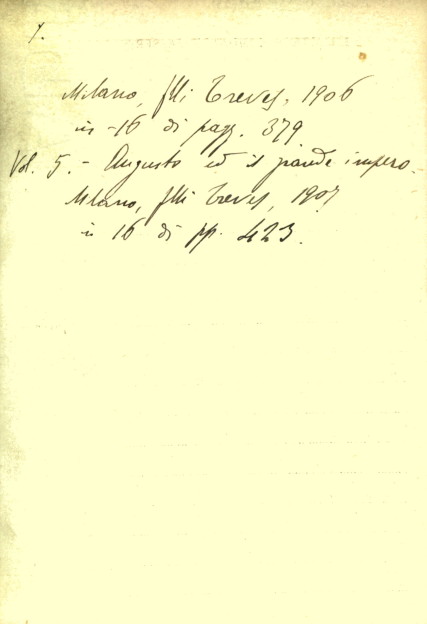 Milano, flli Treves, 1906
in-16 di pagg. 379
Vol. 5. - Augusto ed il grande impero.
Milano, flli Treves, 1907
in 16 di pp. 423.